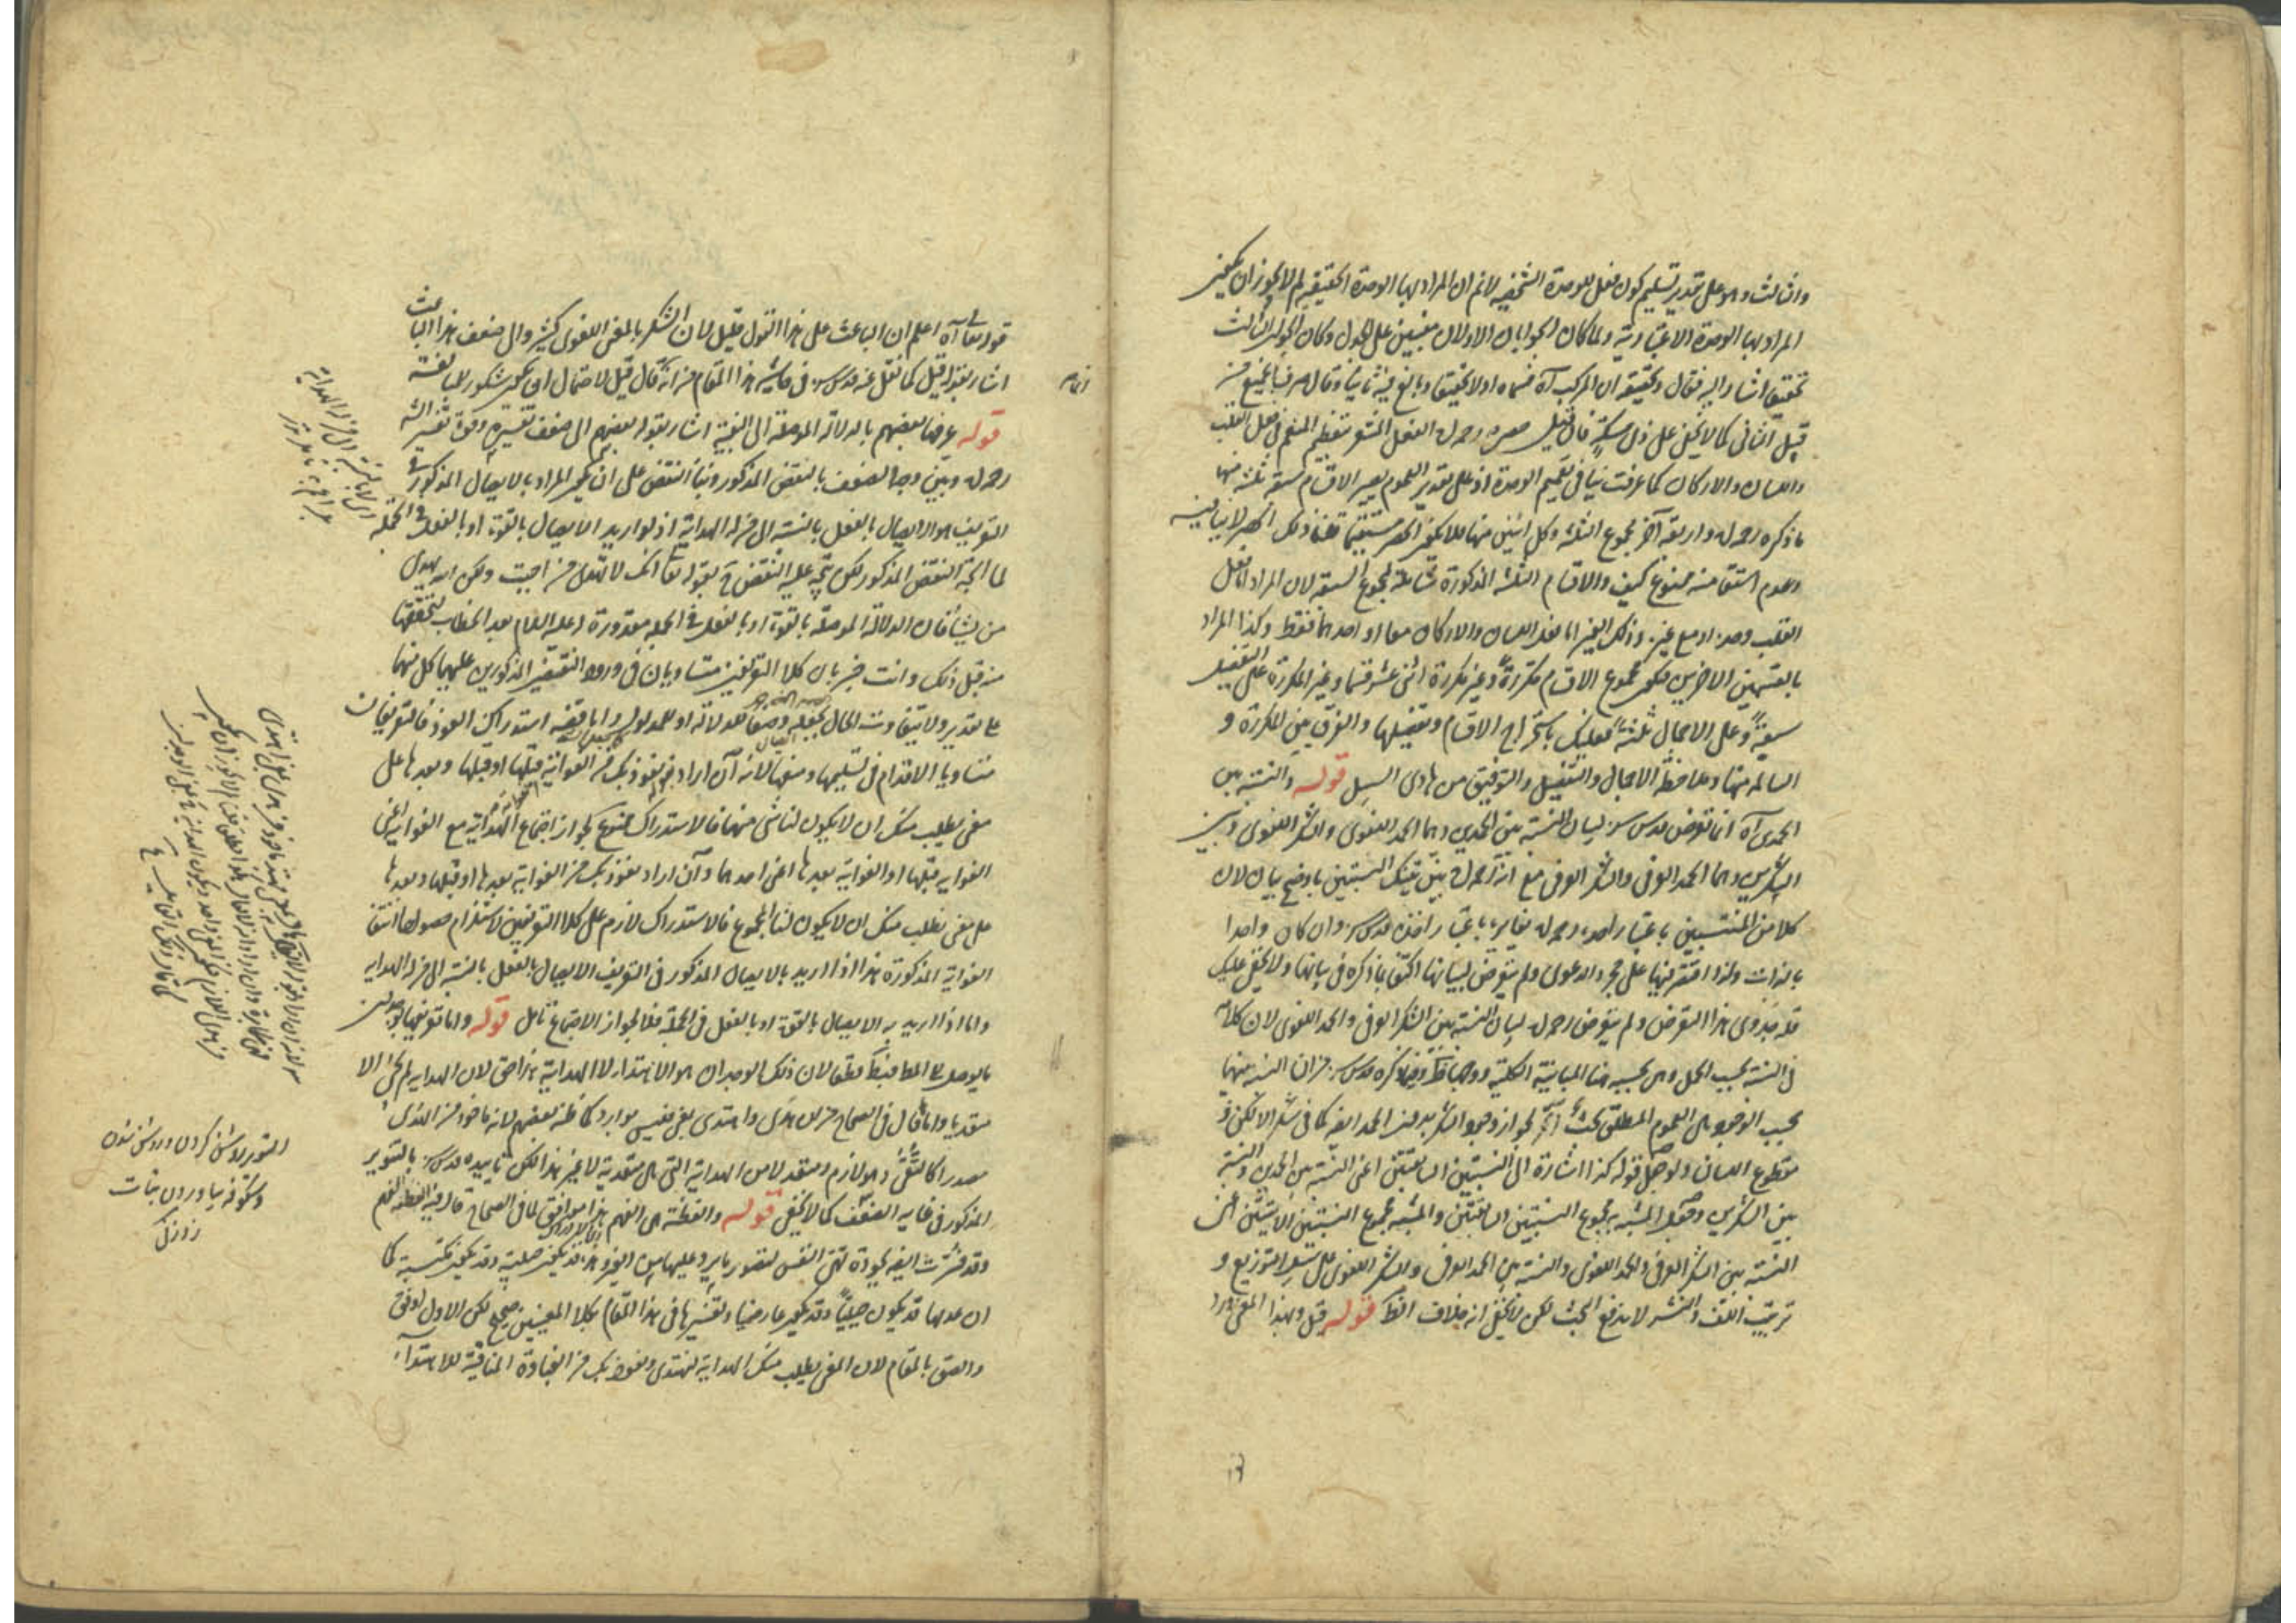 والثالث وهو على تقدير تسليم كون فعل للوحدة الشخصية لانم ان المراد بها الوحدة الحقيقية لم لا يجوز ان يكون
المراد بها الوحدة الاعتبارية ولما كان الجوابان الاولان مبنيين على وكان الجواب الثالث
تحقيق اشار اليه فقال وتحقيقه ان المركب آه فسماه اولا تحقيقا وبالغ فيه ثانيا وقال
قبيل الثاني كما لا يخفى على ذي مسكة قال رحمه الله الفعل المشعر بتعظيم المنعم فعل القلب
واللسان والاركان كما عرفت في تعميم الوحدة اذ على تقدير العموم يصير الاقسام سبعة ثلثة منها
ما ذكره رحمه الله واربعة آخر مجموع الثلثة وكل اثنين منها فلا يكون الحصر مستقيما قلنا ذلك الحصر لا ينافيه
وعدم استقامته ممنوع كيف والاقسام الثلثة المذكورة شاملة لمجموع السبعة لان المراد اما فعل
القلب وحده او مع غيره وذلك الغير اما فعل اللسان والاركان معا او احدهما فقط وكذا المراد
بالقسمين الاخرين فيكون مجموع الاقسام مكررة وغير مكررة اثنى عشر قسما وغير المكررة على التفصيل
سبعة وعلى الاجمال ثلثة فعليك باستخراج الاقسام وتفصيلها والفرق بين المكررة و
السالمة منها وملاحظة الاجمال والتفصيل والتوفيق من هادي السبيل قوله والنسبة بين
الحمدين آه انما تعرض قدس سره لبيان النسبة بين الحمدين وهما الحمد اللغوي والشكر اللغوي وبين
الشكرين وهما الحمد العرفي والشكر العرفي مع انه رحمه الله بين تينك النسبتين باوضح بيان لان
كلا من المنتسبين باعتبار اخذه رحمه الله مغاير له باعتبار اخذه قدس سره وان كان واحدا
بالذات ولذا اقتصر فيها على مجرد الدعوى ولم يتعرض لبيانها اكتفاء بما ذكره في بيانها ولا يخفى عليك
هذا التعرض ولم يتعرض رحمه الله لبيان النسبة بين الشكر العرفي والحمد اللغوي لان كلامه
في النسبة بحسب الحمل وهي بحسبه هنا المباينة الكلية ذكره قدس سره من ان النسبة بينهما
بحسب الوجود هي العموم المطلق بحث لجواز وجود الشكر بدون الحمد اللغوي كما في شكر الالكن و
مقطوع اللسان ولو جعل قوله كذا اشارة الى النسبتين السابقتين اعنى النسبة بين الحمدين والنسبة
بين الشكرين وجعل المشبه به مجموع النسبتين السابقتين والمشبه مجموع النسبتين الآتيتين اعنى
النسبة بين الشكر العرفي والحمد اللغوي والنسبة بين الحمد العرفي والشكر اللغوي على سبيل التوزيع و
ترتيب اللف والنشر لاندفع البحث لكن لا يخفى انه خلاف الظ قوله قيل وبهذا المعنى ورد
قوله تعالى آه اعلم ان الباعث على هذا القول قيل لان الشكر بالمعنى اللغوي كثير والى ضعف هذا الباعث
اشار بقوله قيل كما نقل عنه قدس سره في حاشية هذا المقام من انه قال قيل لاحتمال ان يكون شكور للمبالغة
قوله عرفها بعضهم بالدلالة الموصلة الى البغية اشار بقوله بعضهم الى ضعف تفسيره وقوة تفسير الشه
رحمه الله وبين وجه الضعف بالنقض المذكور وبناء النقض على ان يكون المراد بالايصال المذكور في
التعريف هو الايصال بالفعل بالنسبة الى من له الهداية اذ لو اريد الايصال بالقوة او بالفعل في الجملة
لما اتجه النقض المذكور لكن يتجه عليه النقض ح بقوله تعالى انك لا تهدي من احببت ولكن الله يهدي
من يشاء فان الدلالة الموصلة بالقوة او بالفعل في الجملة مقدورة له عليه السلام بعد الخطاب لتحققها
من قبل ذلك وانت خبير بان كلا التعريفين متساويان في ورود النقضين المذكورين عليهما كل منهما
على تقدير ولا يتفاوت الحال بجعله وصفا للدلالة او للمدلول واما قضية استدراك العوذ فالتعريفان
متساويا الاقدام في تسليمها ومنعها لانه ان اراد بقوله نعوذ بك من الغواية قبلها او قبلها وبعدها على
معنى نطلب منك ان لا يكون لنا شئ منهما فالاستدراك ممنوع لجواز اجتماع الهداية مع الغواية اعنى
الغواية قبلها او الغواية بعدها اعنى احدهما وان اراد نعوذ بك من الغواية بعدها او قبلها وبعدها
على معنى نطلب منك ان لا يكون لنا المجموع فالاستدراك لازم على كلا التعريفين لاستلزام حصولها انتفاء
الغواية المذكورة هذا اذا اريد بالايصال المذكور في التعريف الايصال بالفعل بالنسبة الى من له الهداية
واما اذا اريد به الايصال بالقوة او بالفعل في الجملة فلا لجواز الاجتماع تأمل قوله واما تعريفها بوجدان
ما يوصل الى المط فبط قطعا لان ذلك الوجدان هو الاهتداء لا الهداية هذا حق لان الهداية لم تجئ الا
متعديا وما قال في الصحاح من ان هدى واهتدى بمعنى فليس بوارد كما ظنه بعضهم لانه ماخوذ من الهدى
مصدرا كالتقى وهو لازم ومتعد لا من الهداية التي هي متعدية لا غير هذا لكن تأييده قدس سره بالتنوير
المذكور في غاية الضعف كما لا يخفى قوله والفطنة هي الفهم هذا موافق لما في الصحاح قال فيه الفطنة الفهم
وقد فسرت ايضا بجودة تهيئ النفس لتصور ما يرد عليها من الغير وهذه قد يكون جبلية وقد يكون مكتسبة كما
ان عدمها قد يكون جبليا وقد يكون عارضيا وتفسيرها في هذا المقام بكلا المعنيين صحيح لكن الاول اوفق
والصق بالمقام لان المعنى نطلب منك الهداية لنهتدي ونعوذ بك من الغباوة المنافية للاهتداء
التنوير روشن كردن و روشن شدن
وشكوفه بياوردن نبات